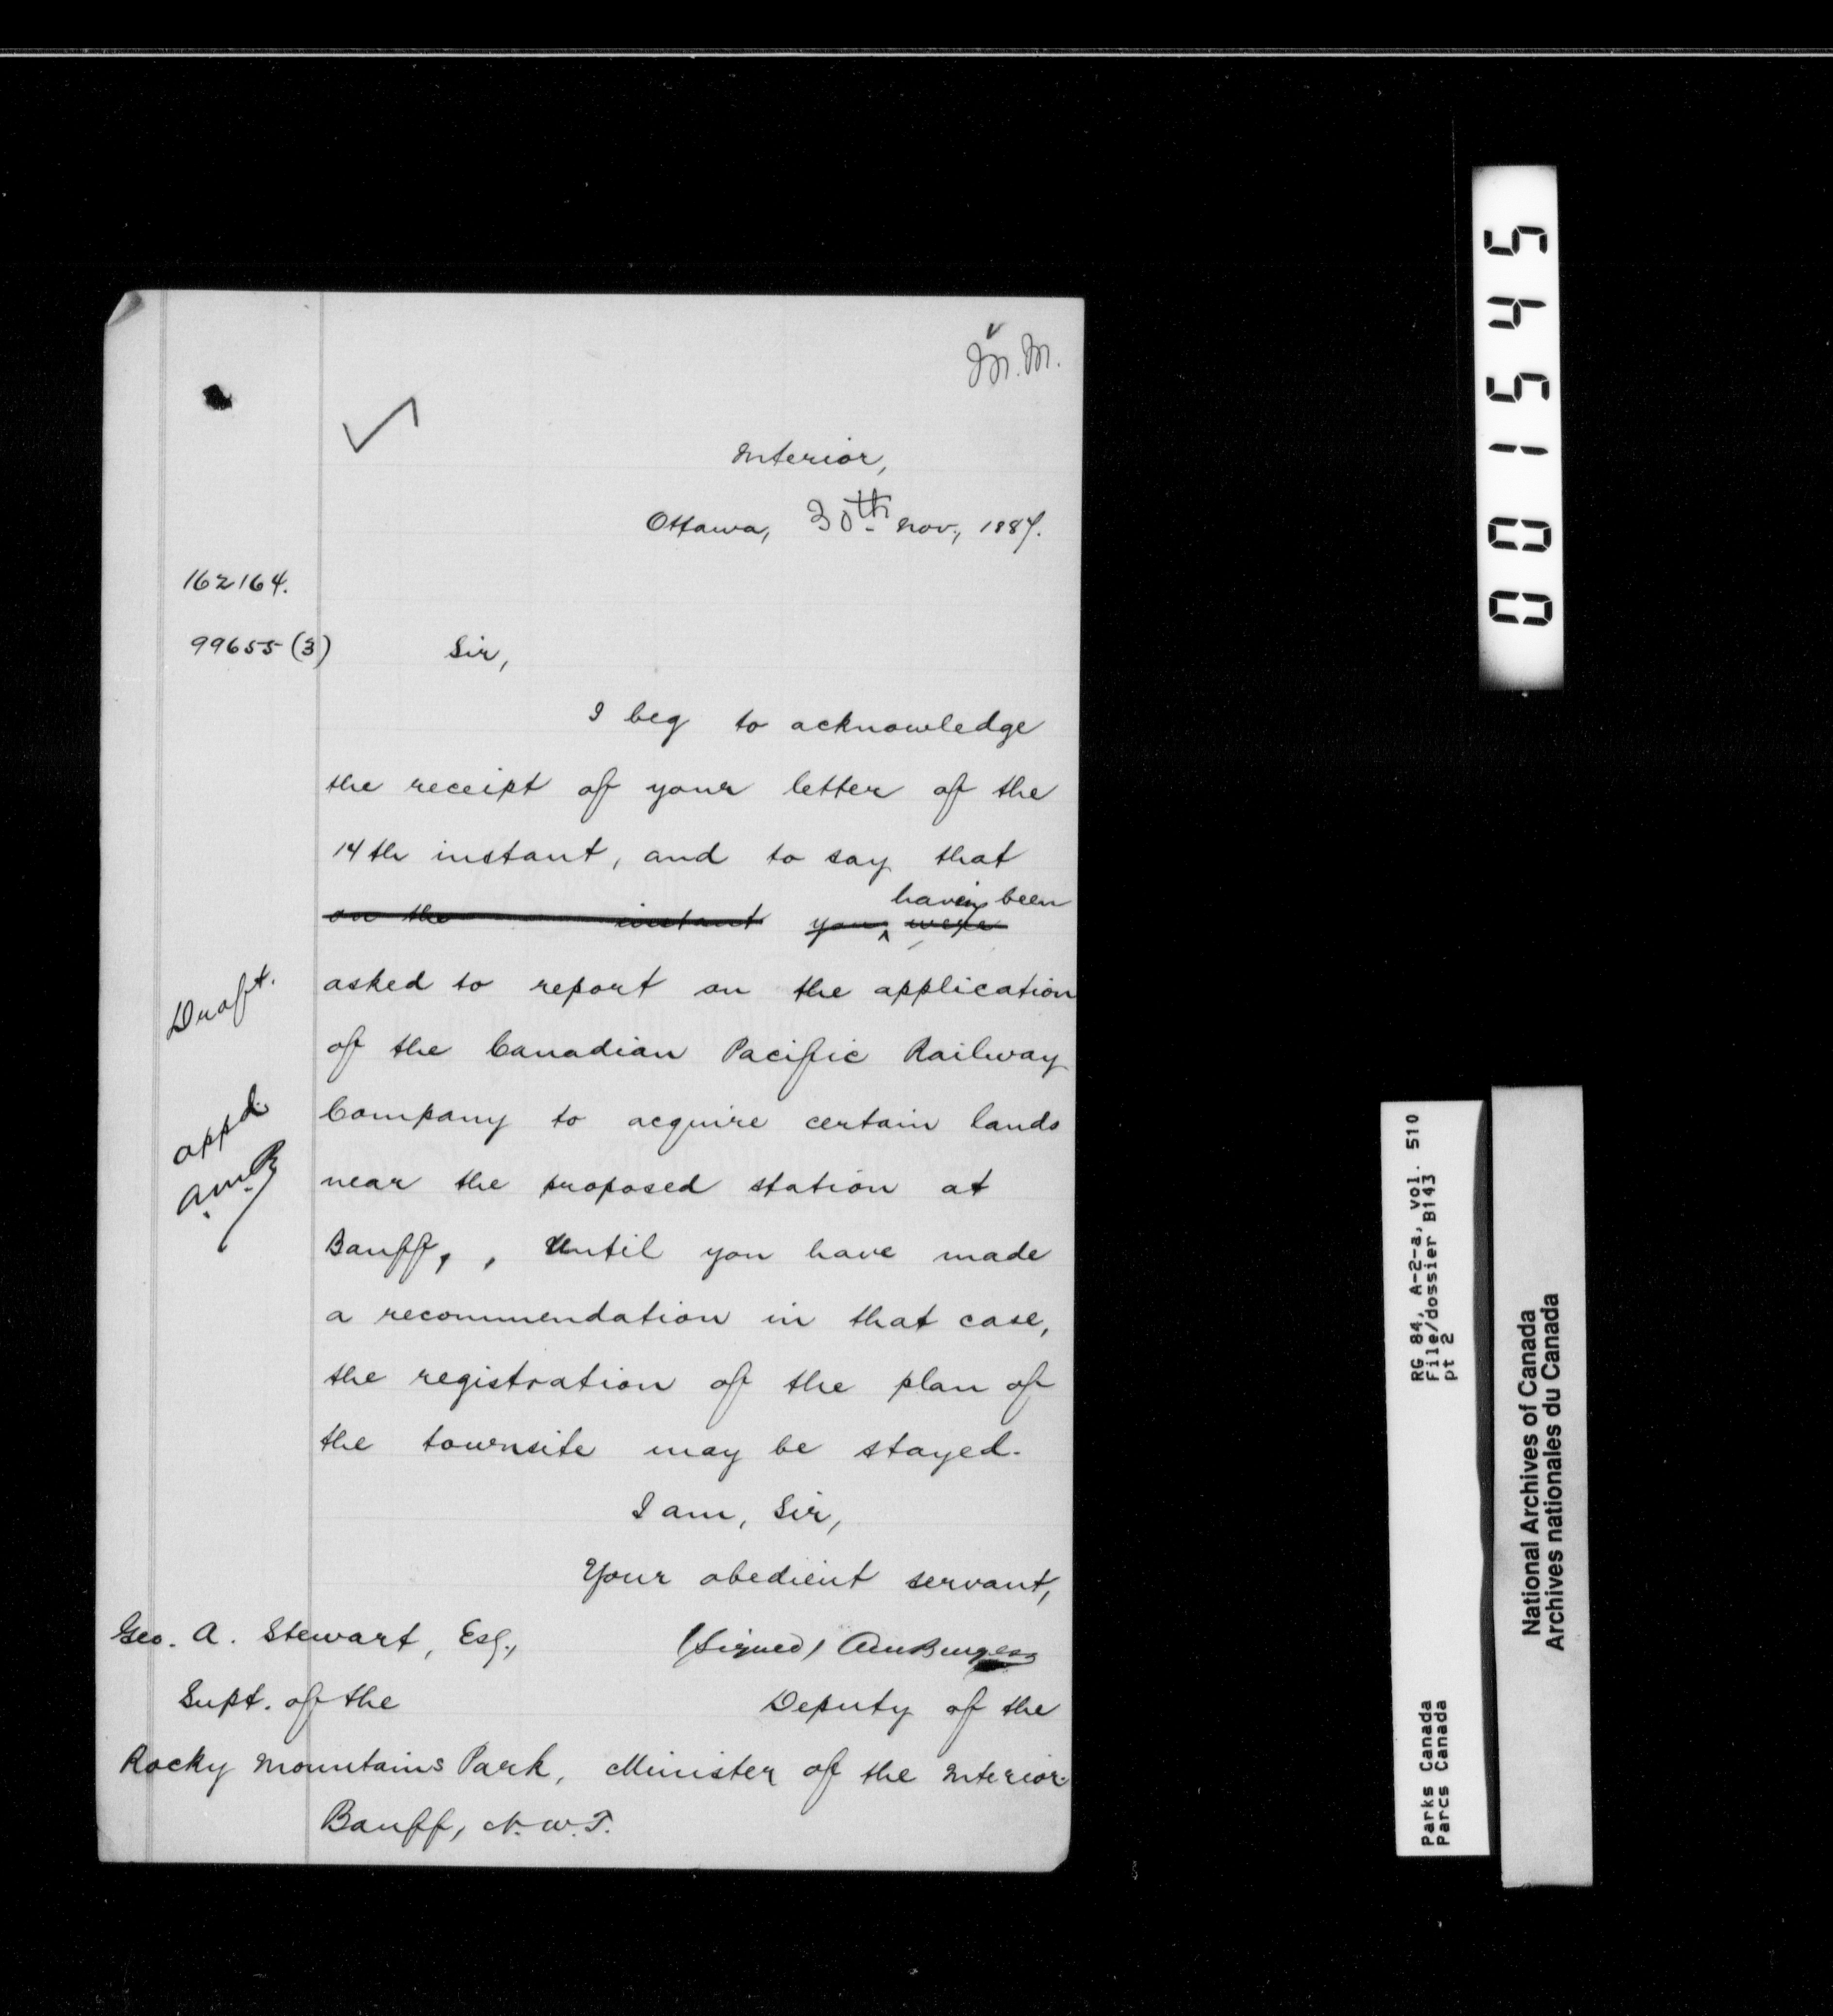 M.M.
Interior,
Ottawa, 30th Nov., 1887.
162164.
99655 (3)
Sir,
I beg to acknowledge
the receipt of your letter of the
14th instant, and to say that
having been
on the instant you were
asked to report on the application
of the Canadian Pacific Railway
Company to acquire certain lands
near the proposed station at
Banff, , Until you have made
a recommendation in that case,
the registration of the plan of
the townsite may be stayed.
I am, Sir,
Your obedient servant,
(Signed) AMBurgess
Deputy of the
Minister of the Interior.
Geo. A. Stewart, Esq.,
Supt. of the
Rocky Mountains Park,
Banff, N.W.T.
Draft.
appd.
AMB
001545
RG 84, A-2-a, vol. 510
File/dossier B143
pt 2
Parks Canada
Parcs Canada
National Archives of Canada
Archives nationales du Canada